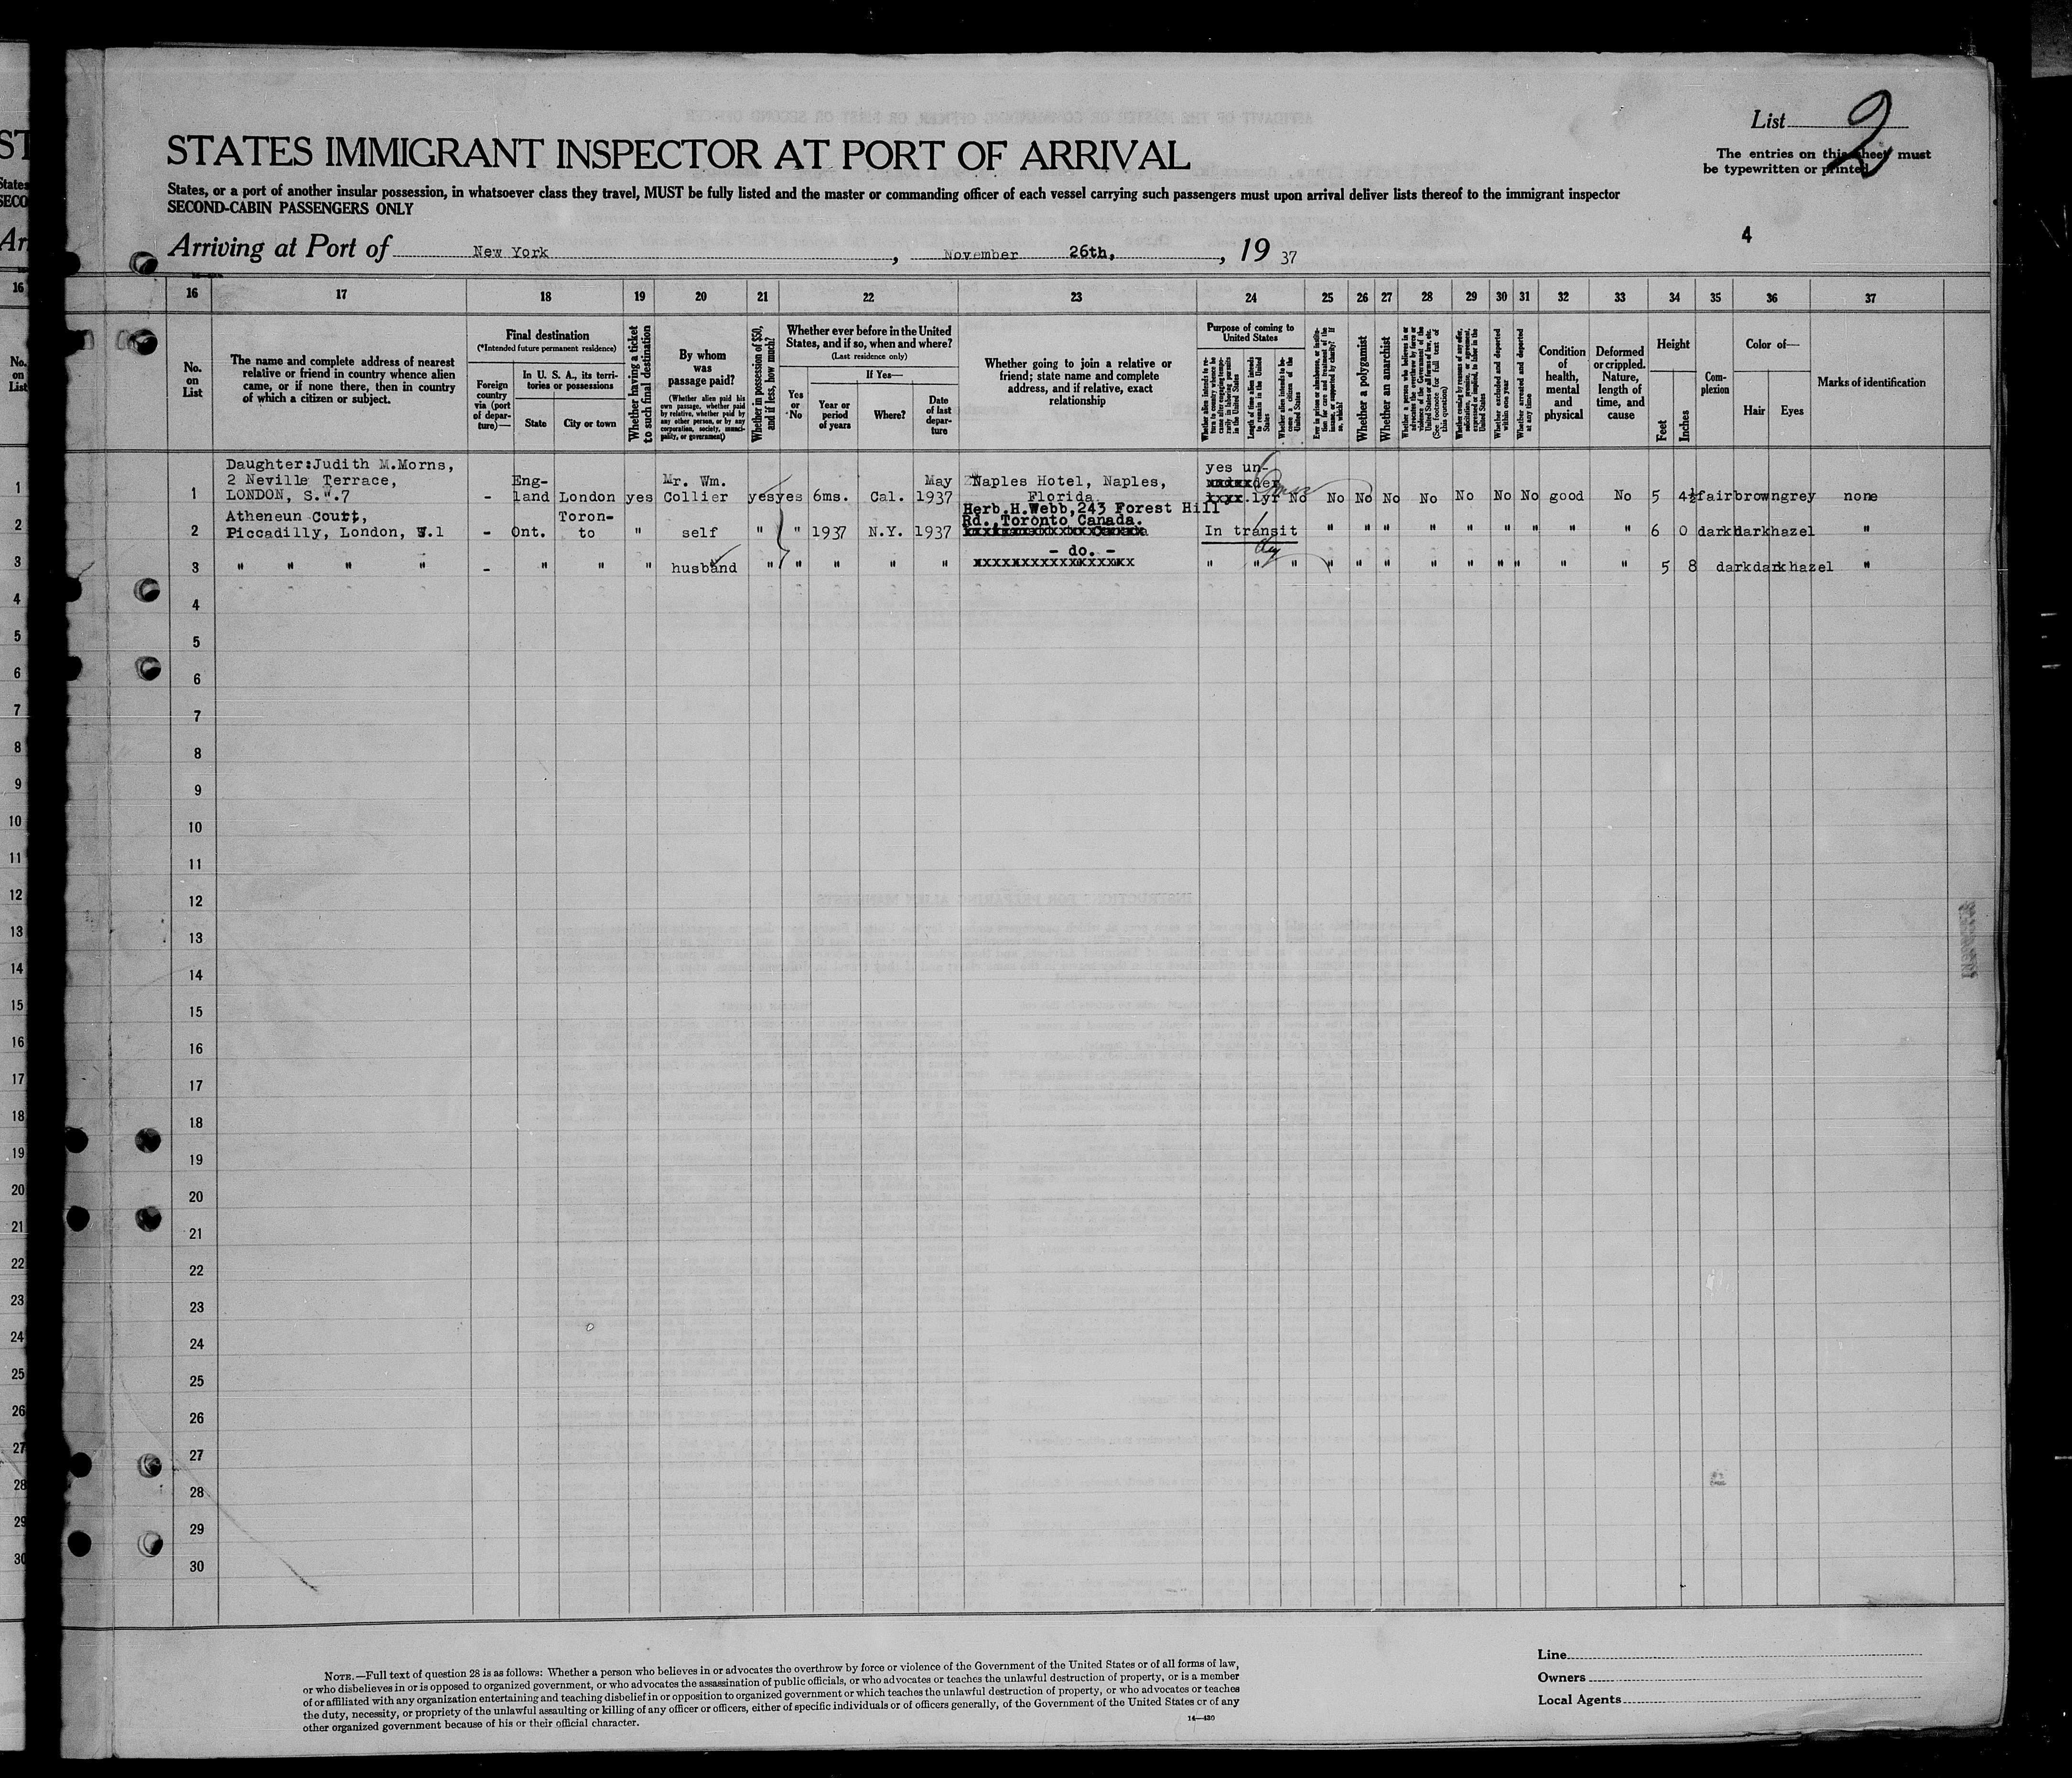 List 2
The entries on this sheet must
be typewritten or printed
STATES IMMIGRANT INSPECTOR AT PORT OF ARRIVAL
States, or a port of another insular possession, in whatsoever class they travel, MUST be fully listed and the master or commanding officer of each vessel carrying such passengers must upon arrival deliver lists thereof to the immigrant inspector
SECOND-CABIN PASSENGERS ONLY
4
Arriving at Port of New York, November 26th, 19 37
16 17 18 19 20 21 22 23 24 25 26 27 28 29 30 31 32 33 34 35 36 37
No. on List
The name and complete address of nearest
relative or friend in country whence alien
came, or if none there, then in country
of which a citizen or subject.
Final destination
(*Intended future permanent residence)
Foreign country via (port of depar-ture)—
In U. S. A., its terri-
tories or possessions
State
City or town
Whether having a ticket
to such final destination
By whom
was
passage paid?
(Whether alien paid his
own passage, whether paid
by relative, whether paid by
any other person, or by any
corporation, society, munici-
pality, or government)
Whether in possession of $50,
and if less, how much?
Whether ever before in the United
States, and if so, when and where?
(Last residence only)
Yes or No
If Yes—
Year or period of years
Where?
Date of last depar-ture
Whether going to join a relative or
friend; state name and complete
address, and if relative, exact
relationship
Purpose of coming to
United States
Length of time alien intends to remain in the United States
Whether alien intends to be-come a citizen of the United States
Whether a polygamist
Whether an anarchist
(See footnote for full text of this question)
Whether excluded and deported within one year
Whether arrested and deported at any time
Condition
of
health,
mental
and
physical
Deformed
or crippled.
Nature,
length of
time, and
cause
Height
Feet
Inches
Com-
plexion
Color of—
Hair
Eyes
Marks of identification
Daughter:Judith M.Morns,
2 Neville Terrace,
1 LONDON, S.W.7 - Eng-land London yes Mr. Wm. Collier yes yes 6ms. Cal. May 1937 Naples Hotel, Naples, Florida yes un-der 1yr No No No No No No No No good No 5 4½ fair brown grey none
Atheneun Coutt,
2 Piccadilly, London, W.1 - Ont. Toron-to " self " " 1937 N.Y. 1937 Herb.H.Webb,243 Forest Hill Rd.,Toronto Canada. In transit " " " " " " " " " 6 0 dark dark hazel "
3 " " " " - " " " husband " " " " " - do. - " " " " " " " " " " " " 5 8 dark dark hazel "
4
5
6
7
8
9
10
11
12
13
14
15
16
17
18
19
20
21
22
23
24
25
26
27
28
29
30
NOTE.—Full text of question 28 is as follows: Whether a person who believes in or advocates the overthrow by force or violence of the Government of the United States or of all forms of law,
or who disbelieves in or is opposed to organized government, or who advocates the assassination of public officials, or who advocates or teaches the unlawful destruction of property, or is a member
of or affiliated with any organization entertaining and teaching disbelief in or opposition to organized government or which teaches the unlawful destruction of property, or who advocates or teaches
the duty, necessity, or propriety of the unlawful assaulting or killing of any officer or officers, either of specific individuals or of officers generally, of the Government of the United States or of any
other organized government because of his or their official character.
14—430
Line
Owners
Local Agents